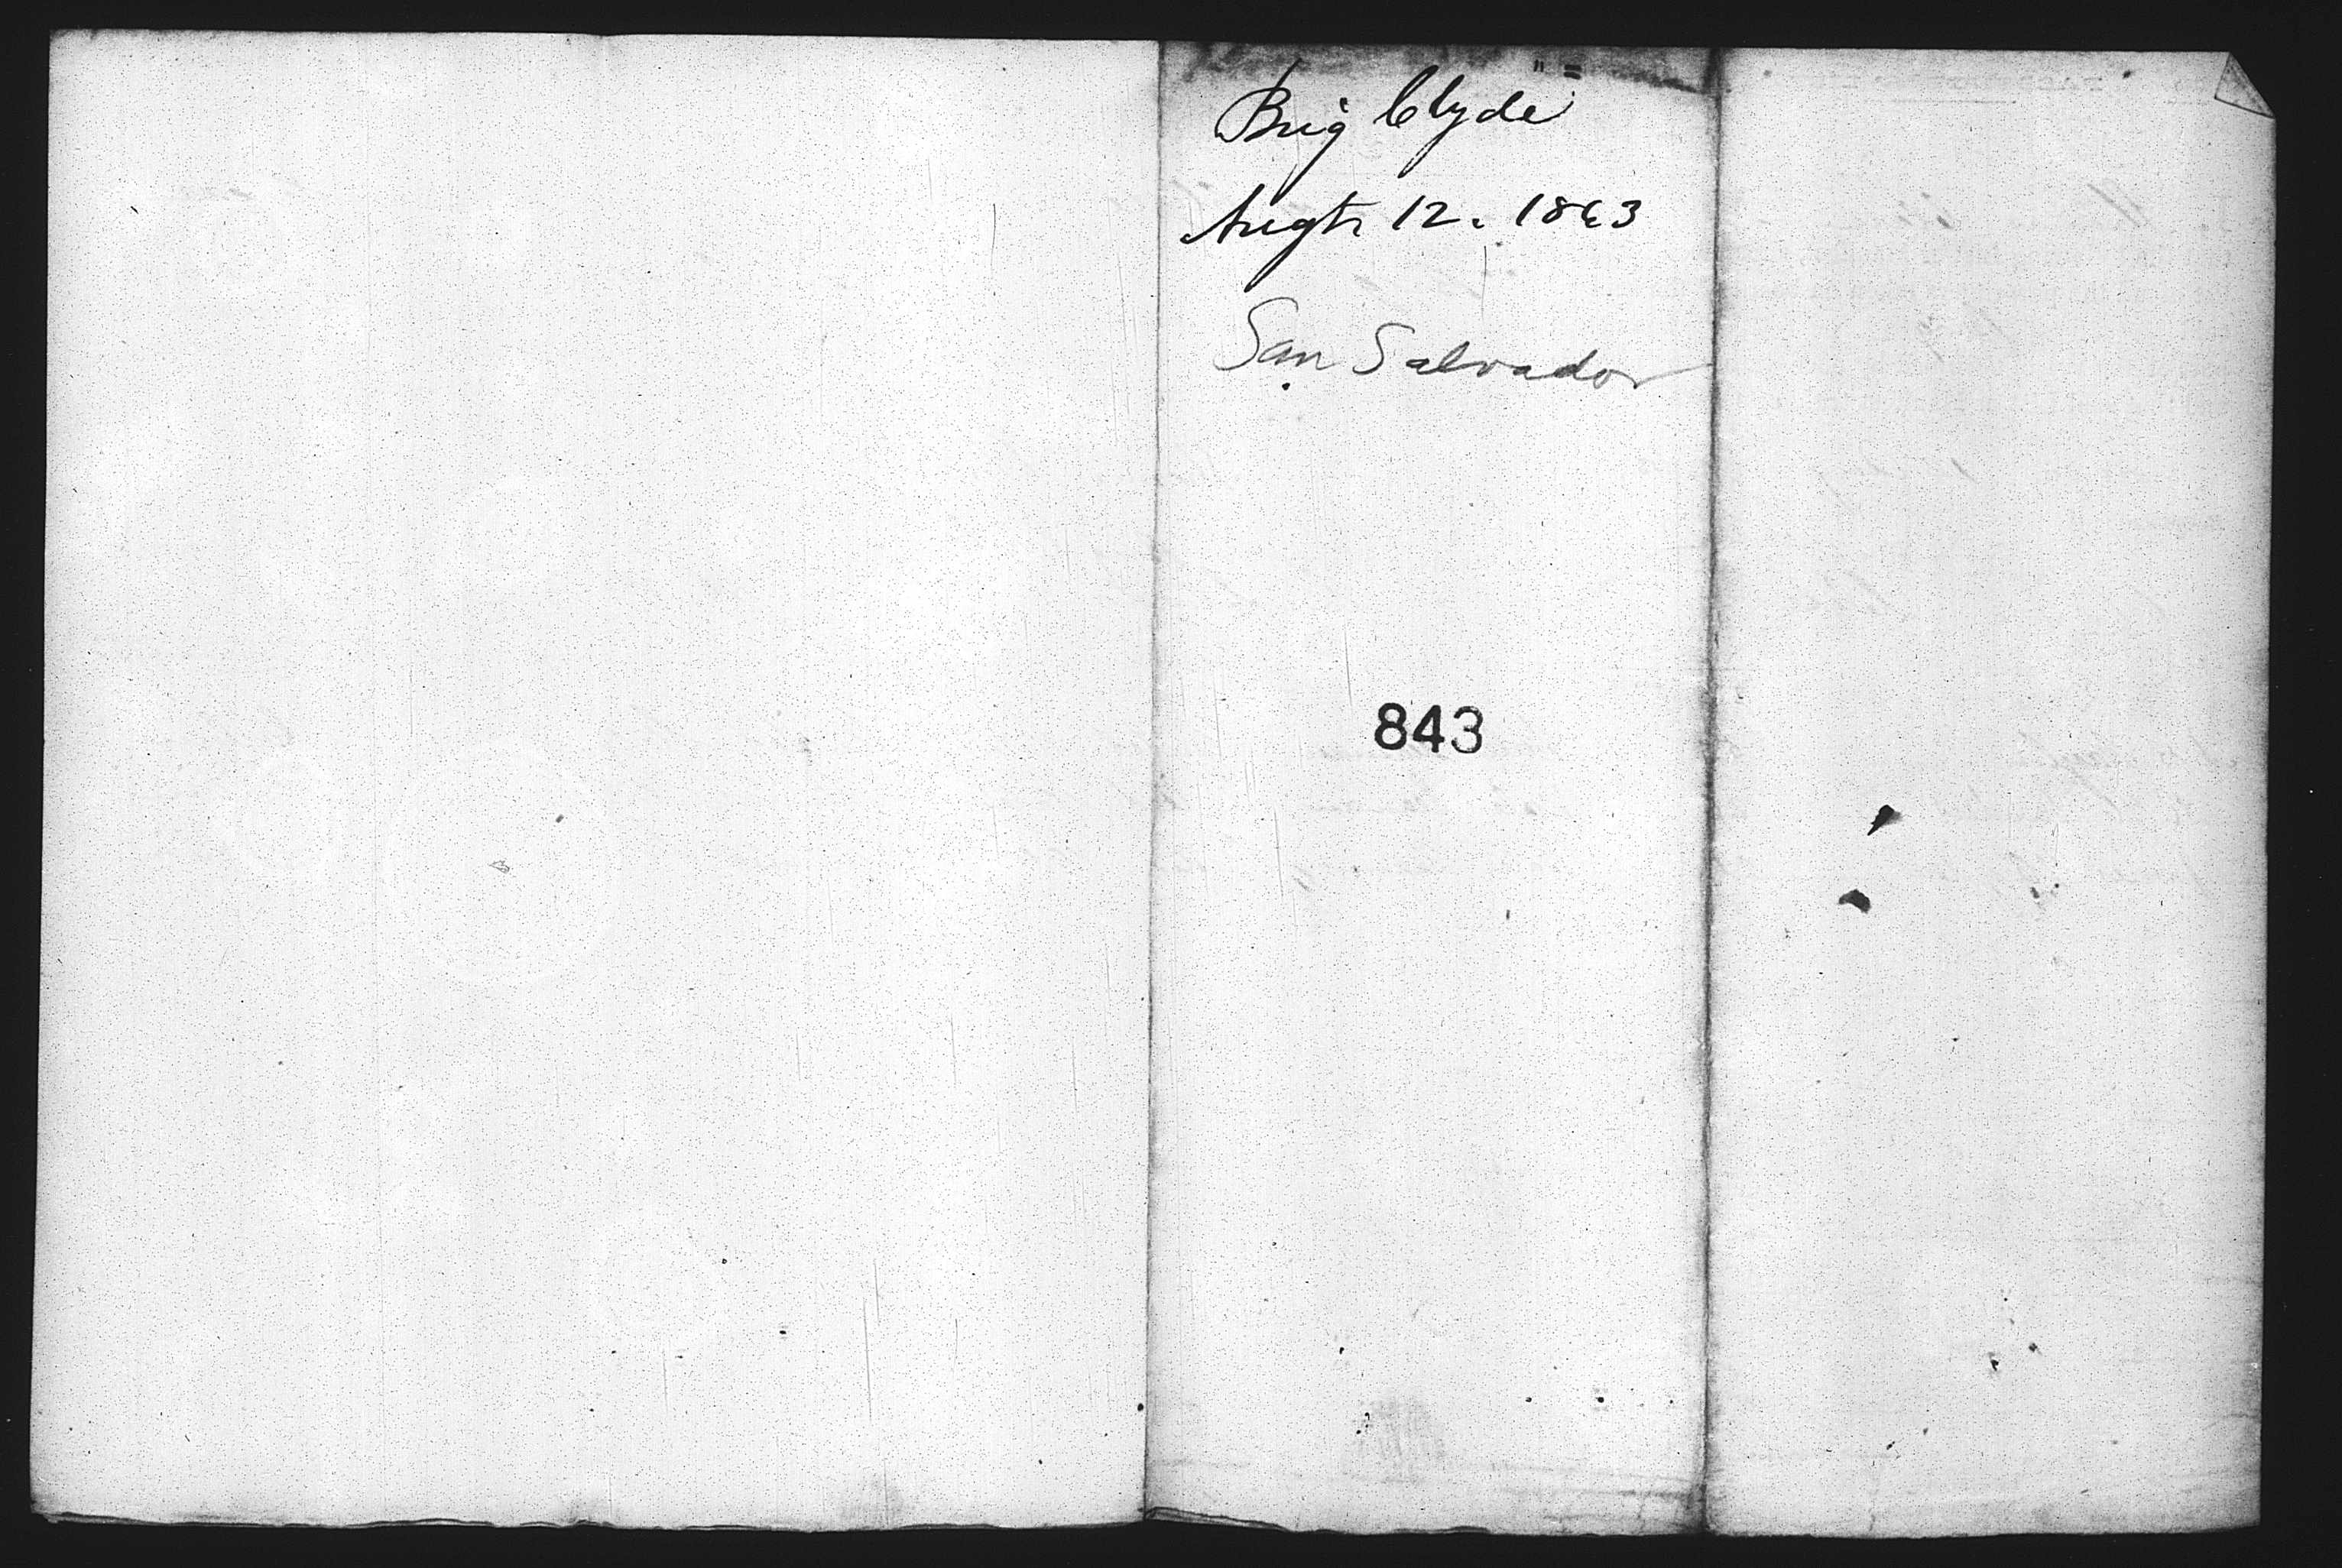 Brig Clyde
Augt. 12. 1863
San Salvador
843